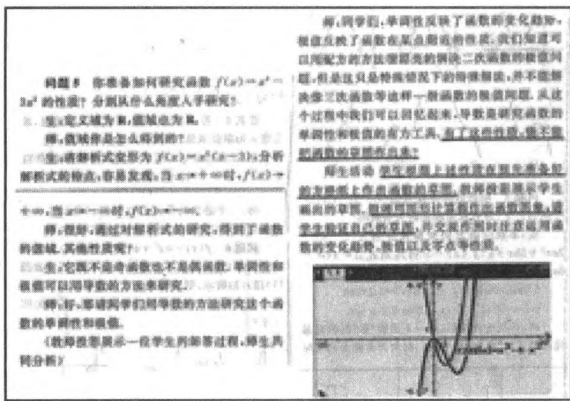 问题5 你准备如何研究函数 f(x)=x³-
3x² 的性质？分别从什么角度入手研究？
生:定义域为 R,值域也为 R.
师:值域你是怎么得到的？
生:将解析式变形为 f(x)=x²(x-3),分析
解析式的特点,容易发现,当 x→+∞时,f(x)→
+∞,当 x→-∞时,f(x)→-∞.
师:很好,通过对解析式的研究,得到了函数
的值域.其他性质呢？
生:它既不是奇函数也不是偶函数.单调性和
极值可以用导数的方法来研究.
师:好,那请同学们用导数的方法研究这个函
数的单调性和极值.
(教师投影展示一位学生的解答过程,师生共
同分析)
师:同学们,单调性反映了函数的变化趋势,
极值反映了函数在某点附近的性质.我们知道可
以用配方的方法很漂亮的解决二次函数的极值问
题,但是这只是特殊情况下的特殊解法,并不能解
决像三次函数等这样一般函数的极值问题.从这
个过程中我们可以回忆起来,导数是研究函数的
单调性和极值的有力工具.有了这些性质,能不能
把函数的草图作出来？
师生活动 学生根据上述性质在预先准备好
的方格纸上作出函数的草图.教师投影展示学生
画出的草图.
学生验证自己的草图,并交流作图时注意运用函
数的变化趋势、极值以及零点等性质.